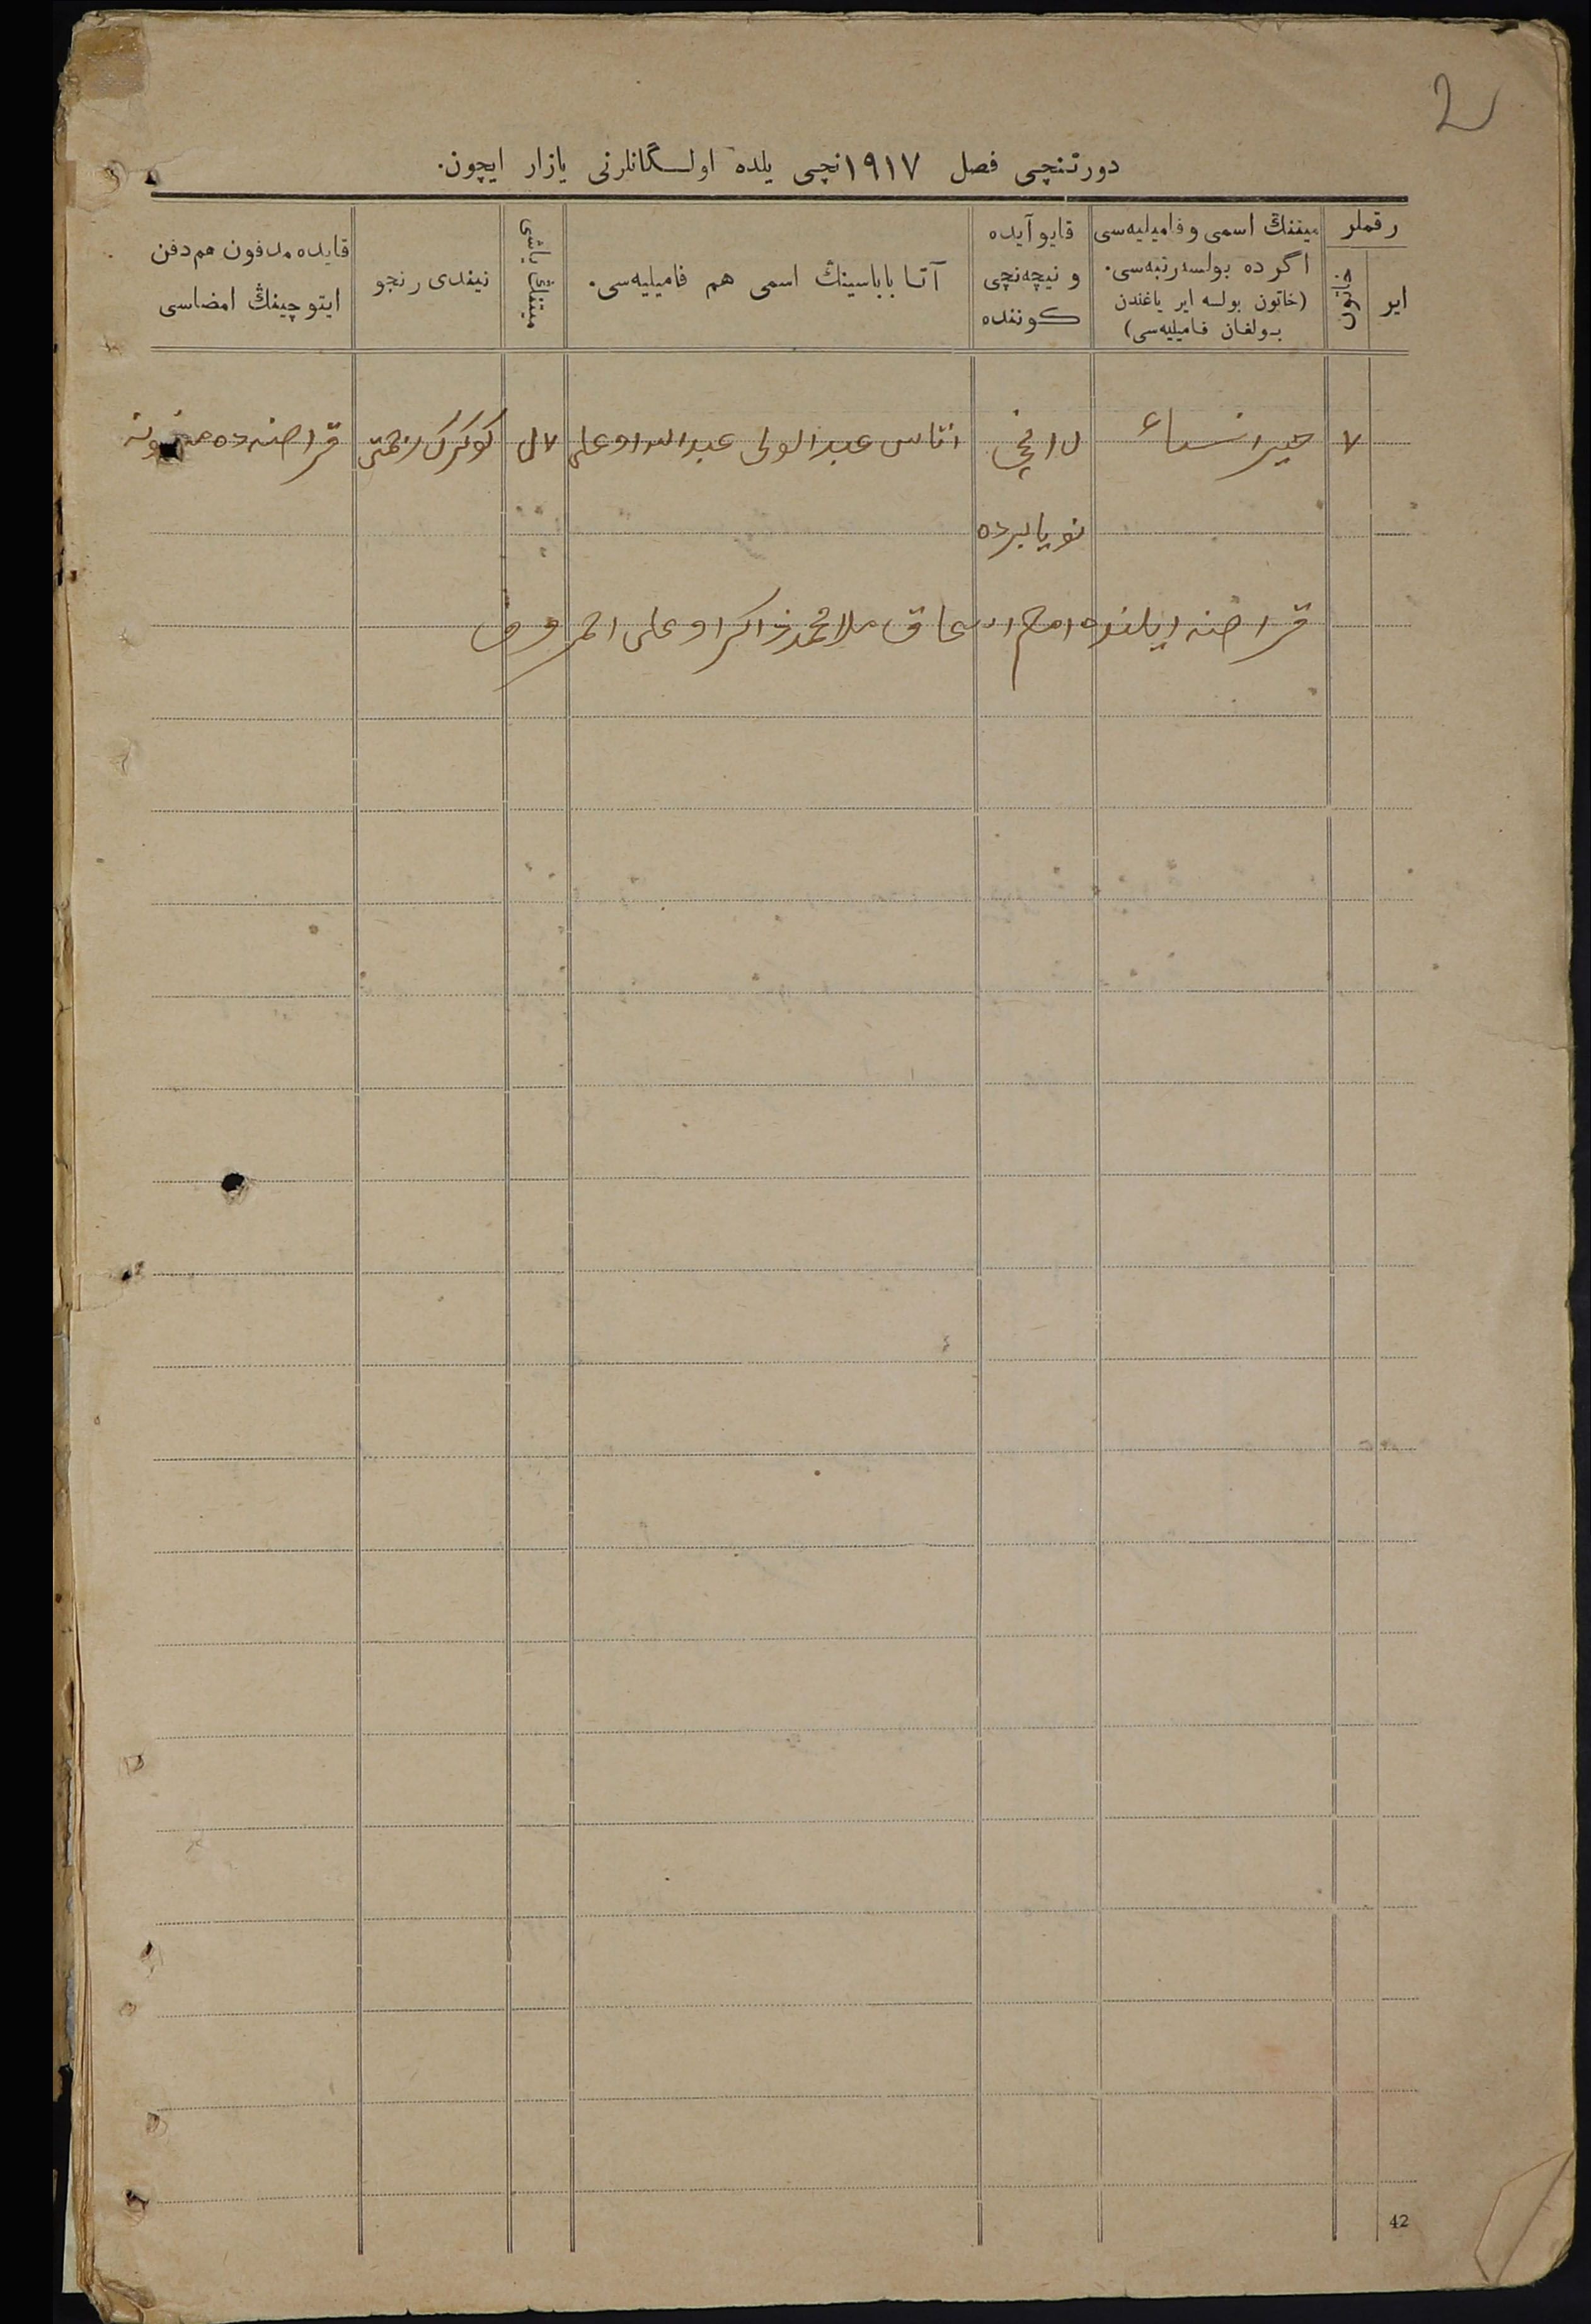 2
دورتنچی فصل ۱۹۱۷نچی یلده اولـگانلرنی یازار ایچون.
رقملر
ایر
خاتون
میتنڭ اسمی وفامیلیه‌سی
اگر ده بولسه رتبه‌سی.
(خاتون بولسه ایر یاغندن
بولغان فامیلیه‌سی)
قایو آیده
و نیچه‌نچی
کوننده
آتا باباسینڭ اسمی هم فامیلیه‌سی.
میتنڭ یاشی
نیندی رنجو
قایده مدفون هم دفن
ایتوچینڭ امضاسی
۷
اتاس عبدالولی عبدالله اوغلی
کوکرک زحمتی
نویابرده
ملا محمد ذاکر اوغلی
42